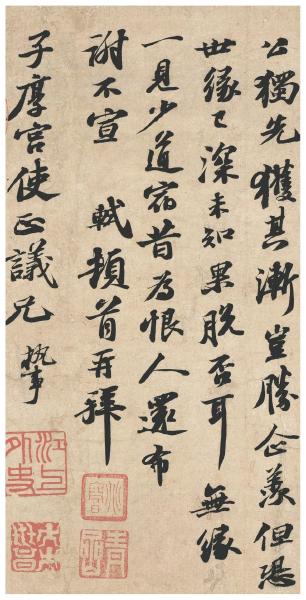 公獨先獲其漸豈勝企羨但恐
世緣已深未知果脫否耳無緣
一見少道宿昔為恨人還布
謝不宣 軾頓首再拜
子厚宮使正議兄 執事
江上外史